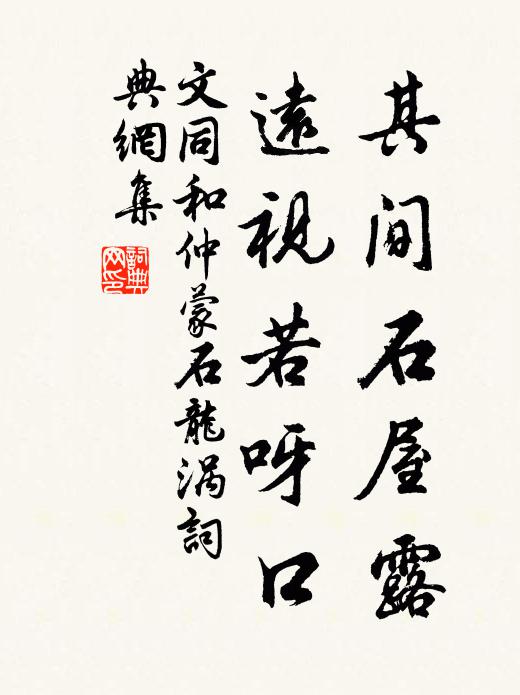 其间石屋露
遠視若呀口
文同和仲蒙石龍涡詞
典網集
詞典
网印